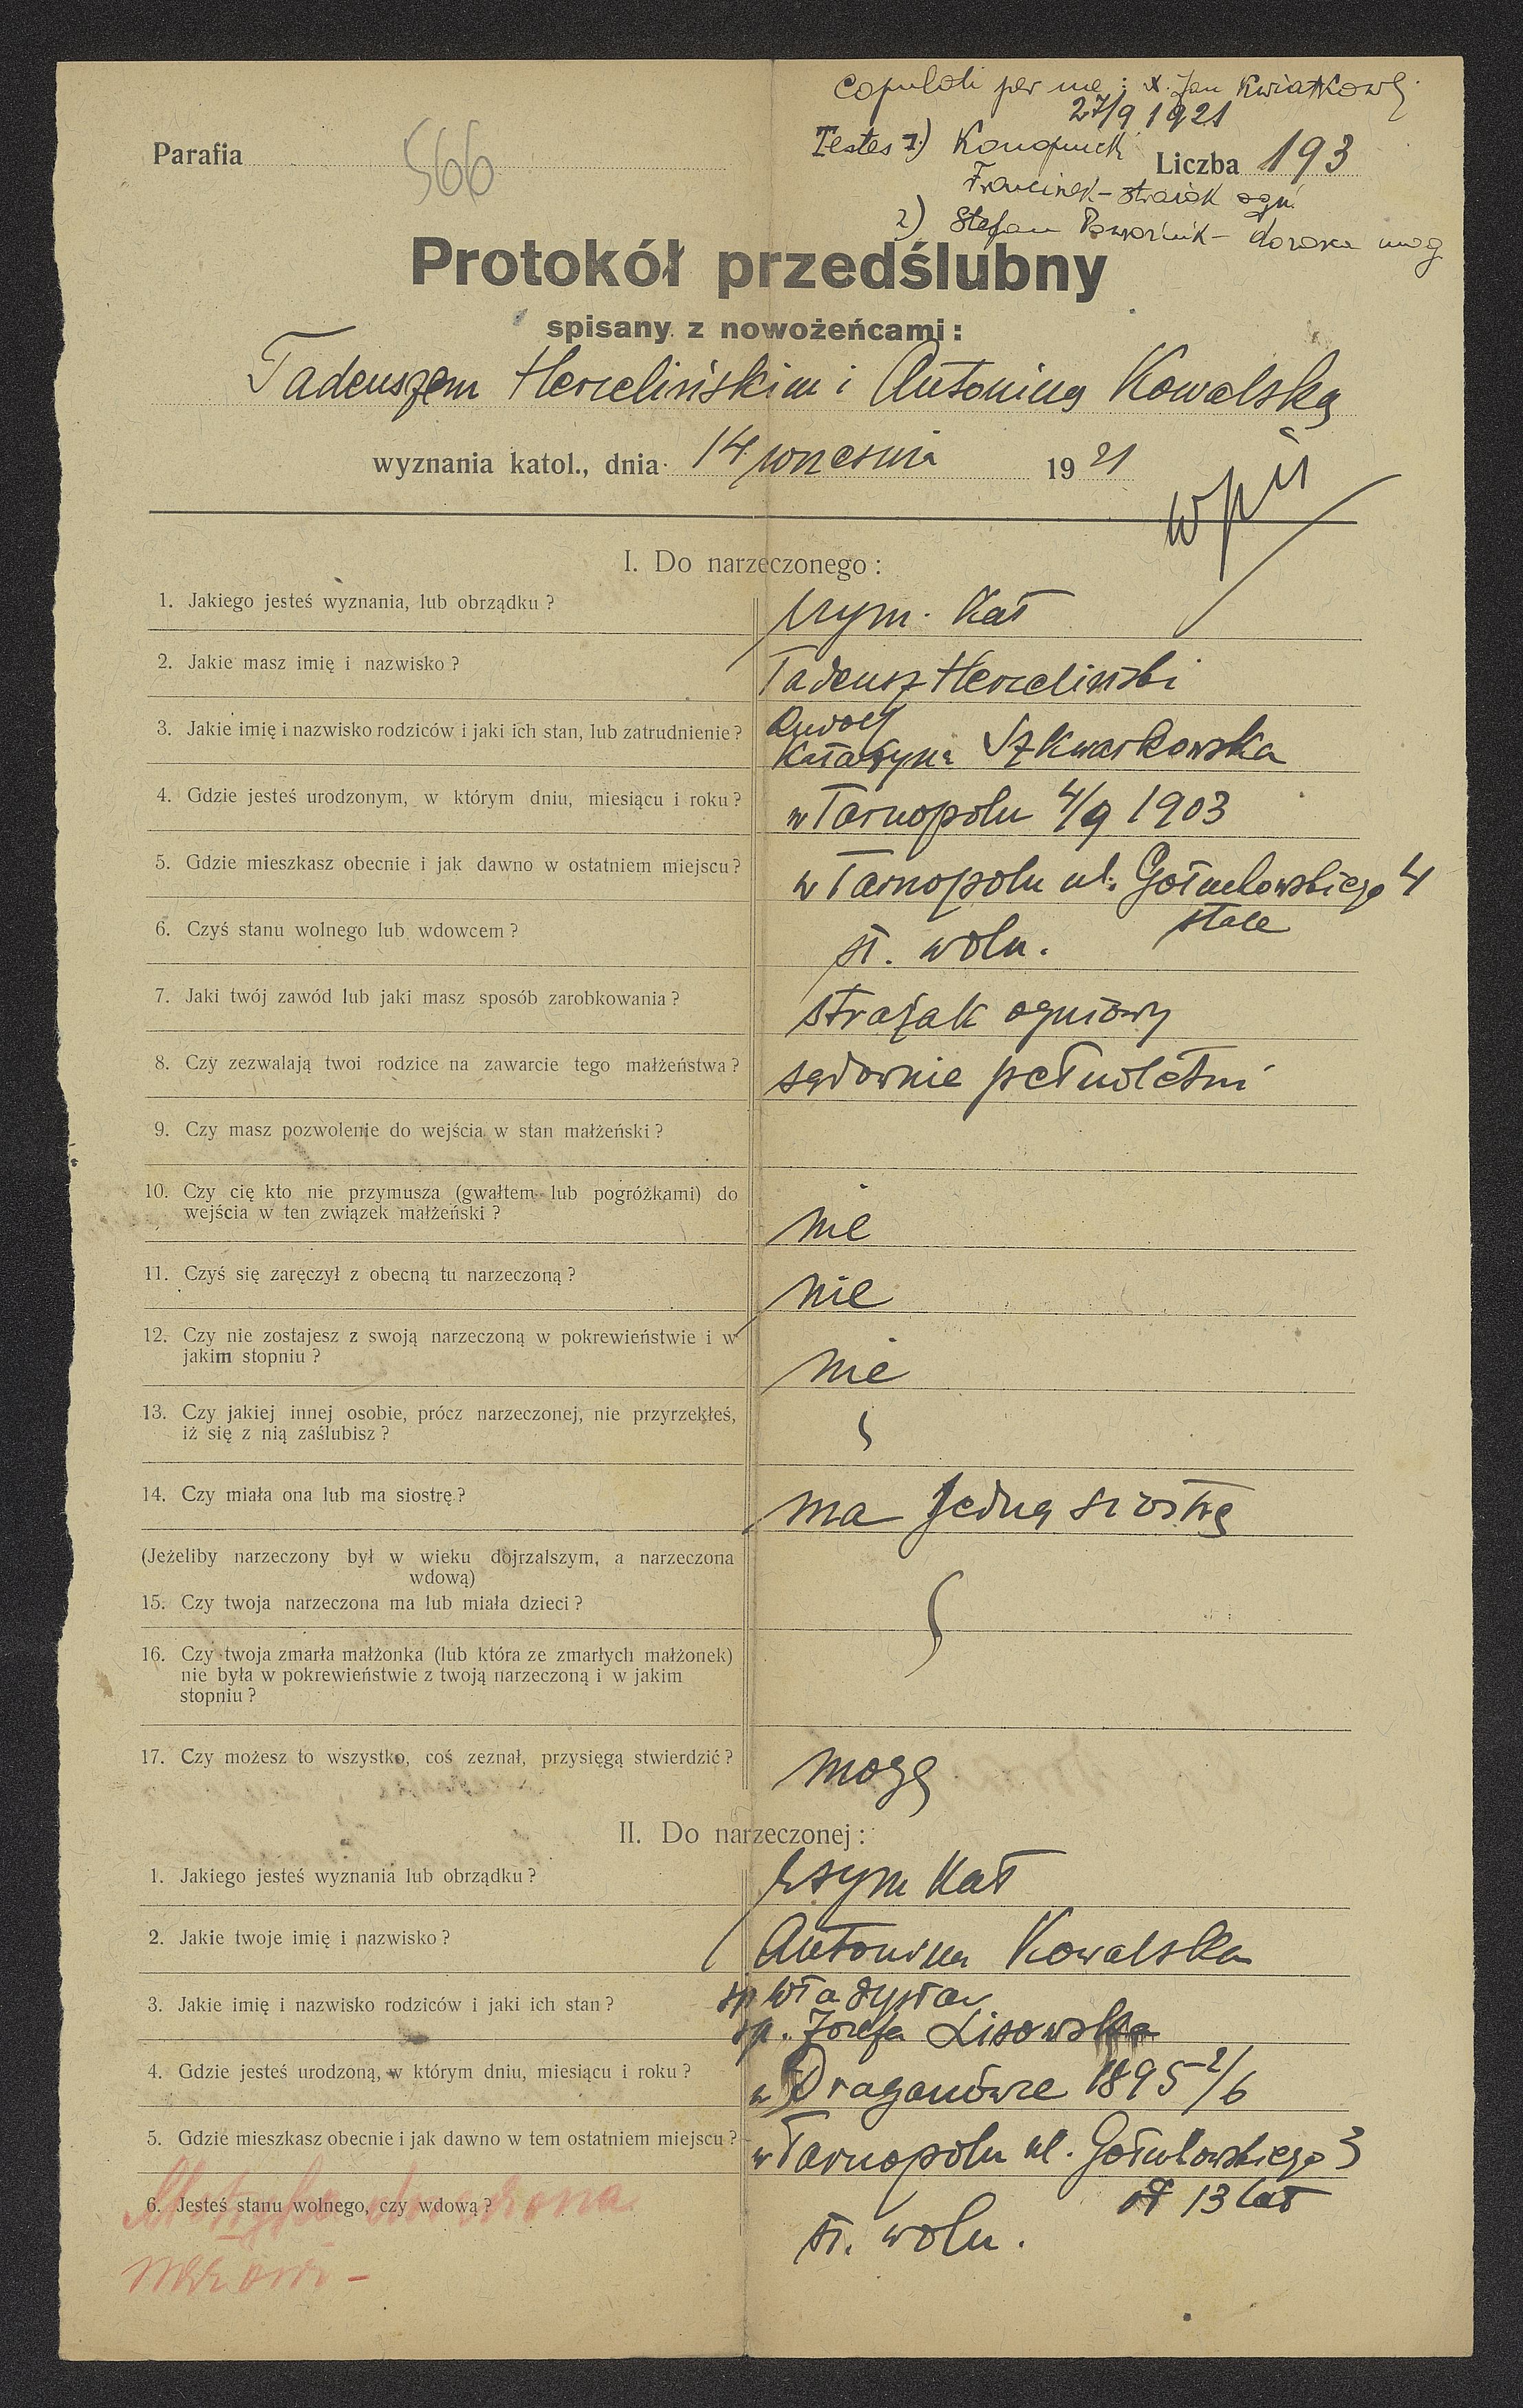 Copulati per me: X. Jan Kwiatkowski
27/9 1921
Parafia 566
Testes 1)
Liczba 193
strażak ogn.
2) Stefan
Protokół przedślubny
spisany z nowożeńcami:
Tadeuszem Hercelińskim i Antoniną Kowalską
wyznania katol., dnia 14 września 1921
wpis
I. Do narzeczonego:
1. Jakiego jesteś wyznania, lub obrządku? rzym. kat
2. Jakie masz imię i nazwisko? Tadeusz Herceliński
3. Jakie imię i nazwisko rodziców i jaki ich stan, lub zatrudnienie? Rudolf
Katarzyna Szkwarkowska
4. Gdzie jesteś urodzonym, w którym dniu, miesiącu i roku? w Tarnopolu 4/9 1903
5. Gdzie mieszkasz obecnie i jak dawno w ostatniem miejscu? w Tarnopolu ul. Gołuchowskiego 4
stale
6. Czyś stanu wolnego lub wdowcem? st. woln.
7. Jaki twój zawód lub jaki masz sposób zarobkowania? strażak ogniowy
8. Czy zezwalają twoi rodzice na zawarcie tego małżeństwa? sądownie pełnoletni
9. Czy masz pozwolenie do wejścia w stan małżeński?
10. Czy cię kto nie przymusza (gwałtem lub pogróżkami) do
wejścia w ten związek małżeński? nie
11. Czyś się zaręczył z obecną tu narzeczoną? nie
12. Czy nie zostajesz z swoją narzeczoną w pokrewieństwie i w
jakim stopniu? nie
13. Czy jakiej innej osobie, prócz narzeczonej, nie przyrzekłeś,
iż się z nią zaślubisz?
14. Czy miała ona lub ma siostrę? ma jedną siostrę
(Jeżeliby narzeczony był w wieku dojrzalszym, a narzeczona
wdową)
15. Czy twoja narzeczona ma lub miała dzieci?
16. Czy twoja zmarła małżonka (lub która ze zmarłych małżonek)
nie była w pokrewieństwie z twoją narzeczoną i w jakim
stopniu?
17. Czy możesz to wszystko, coś zeznał, przysięgą stwierdzić? mogę
II. Do narzeczonej:
1. Jakiego jesteś wyznania lub obrządku? rzym kat
2. Jakie twoje imię i nazwisko? Antonina Kowalska
3. Jakie imię i nazwisko rodziców i jaki ich stan? śp Władysław
śp. Józefa Lisowska
4. Gdzie jesteś urodzoną, w którym dniu, miesiącu i roku? w Draganówce 1895 2/6
5. Gdzie mieszkasz obecnie i jak dawno w tem ostatniem miejscu? w Tarnopolu ul. Gołuchowskiego 3
od 13 lat
6. Jesteś stanu wolnego, czy wdową? st. woln.